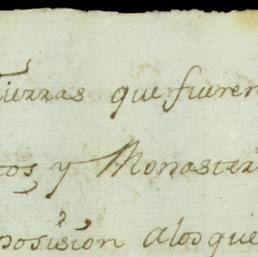 Tierras que fueren
tos, y Monaster
posision alos que